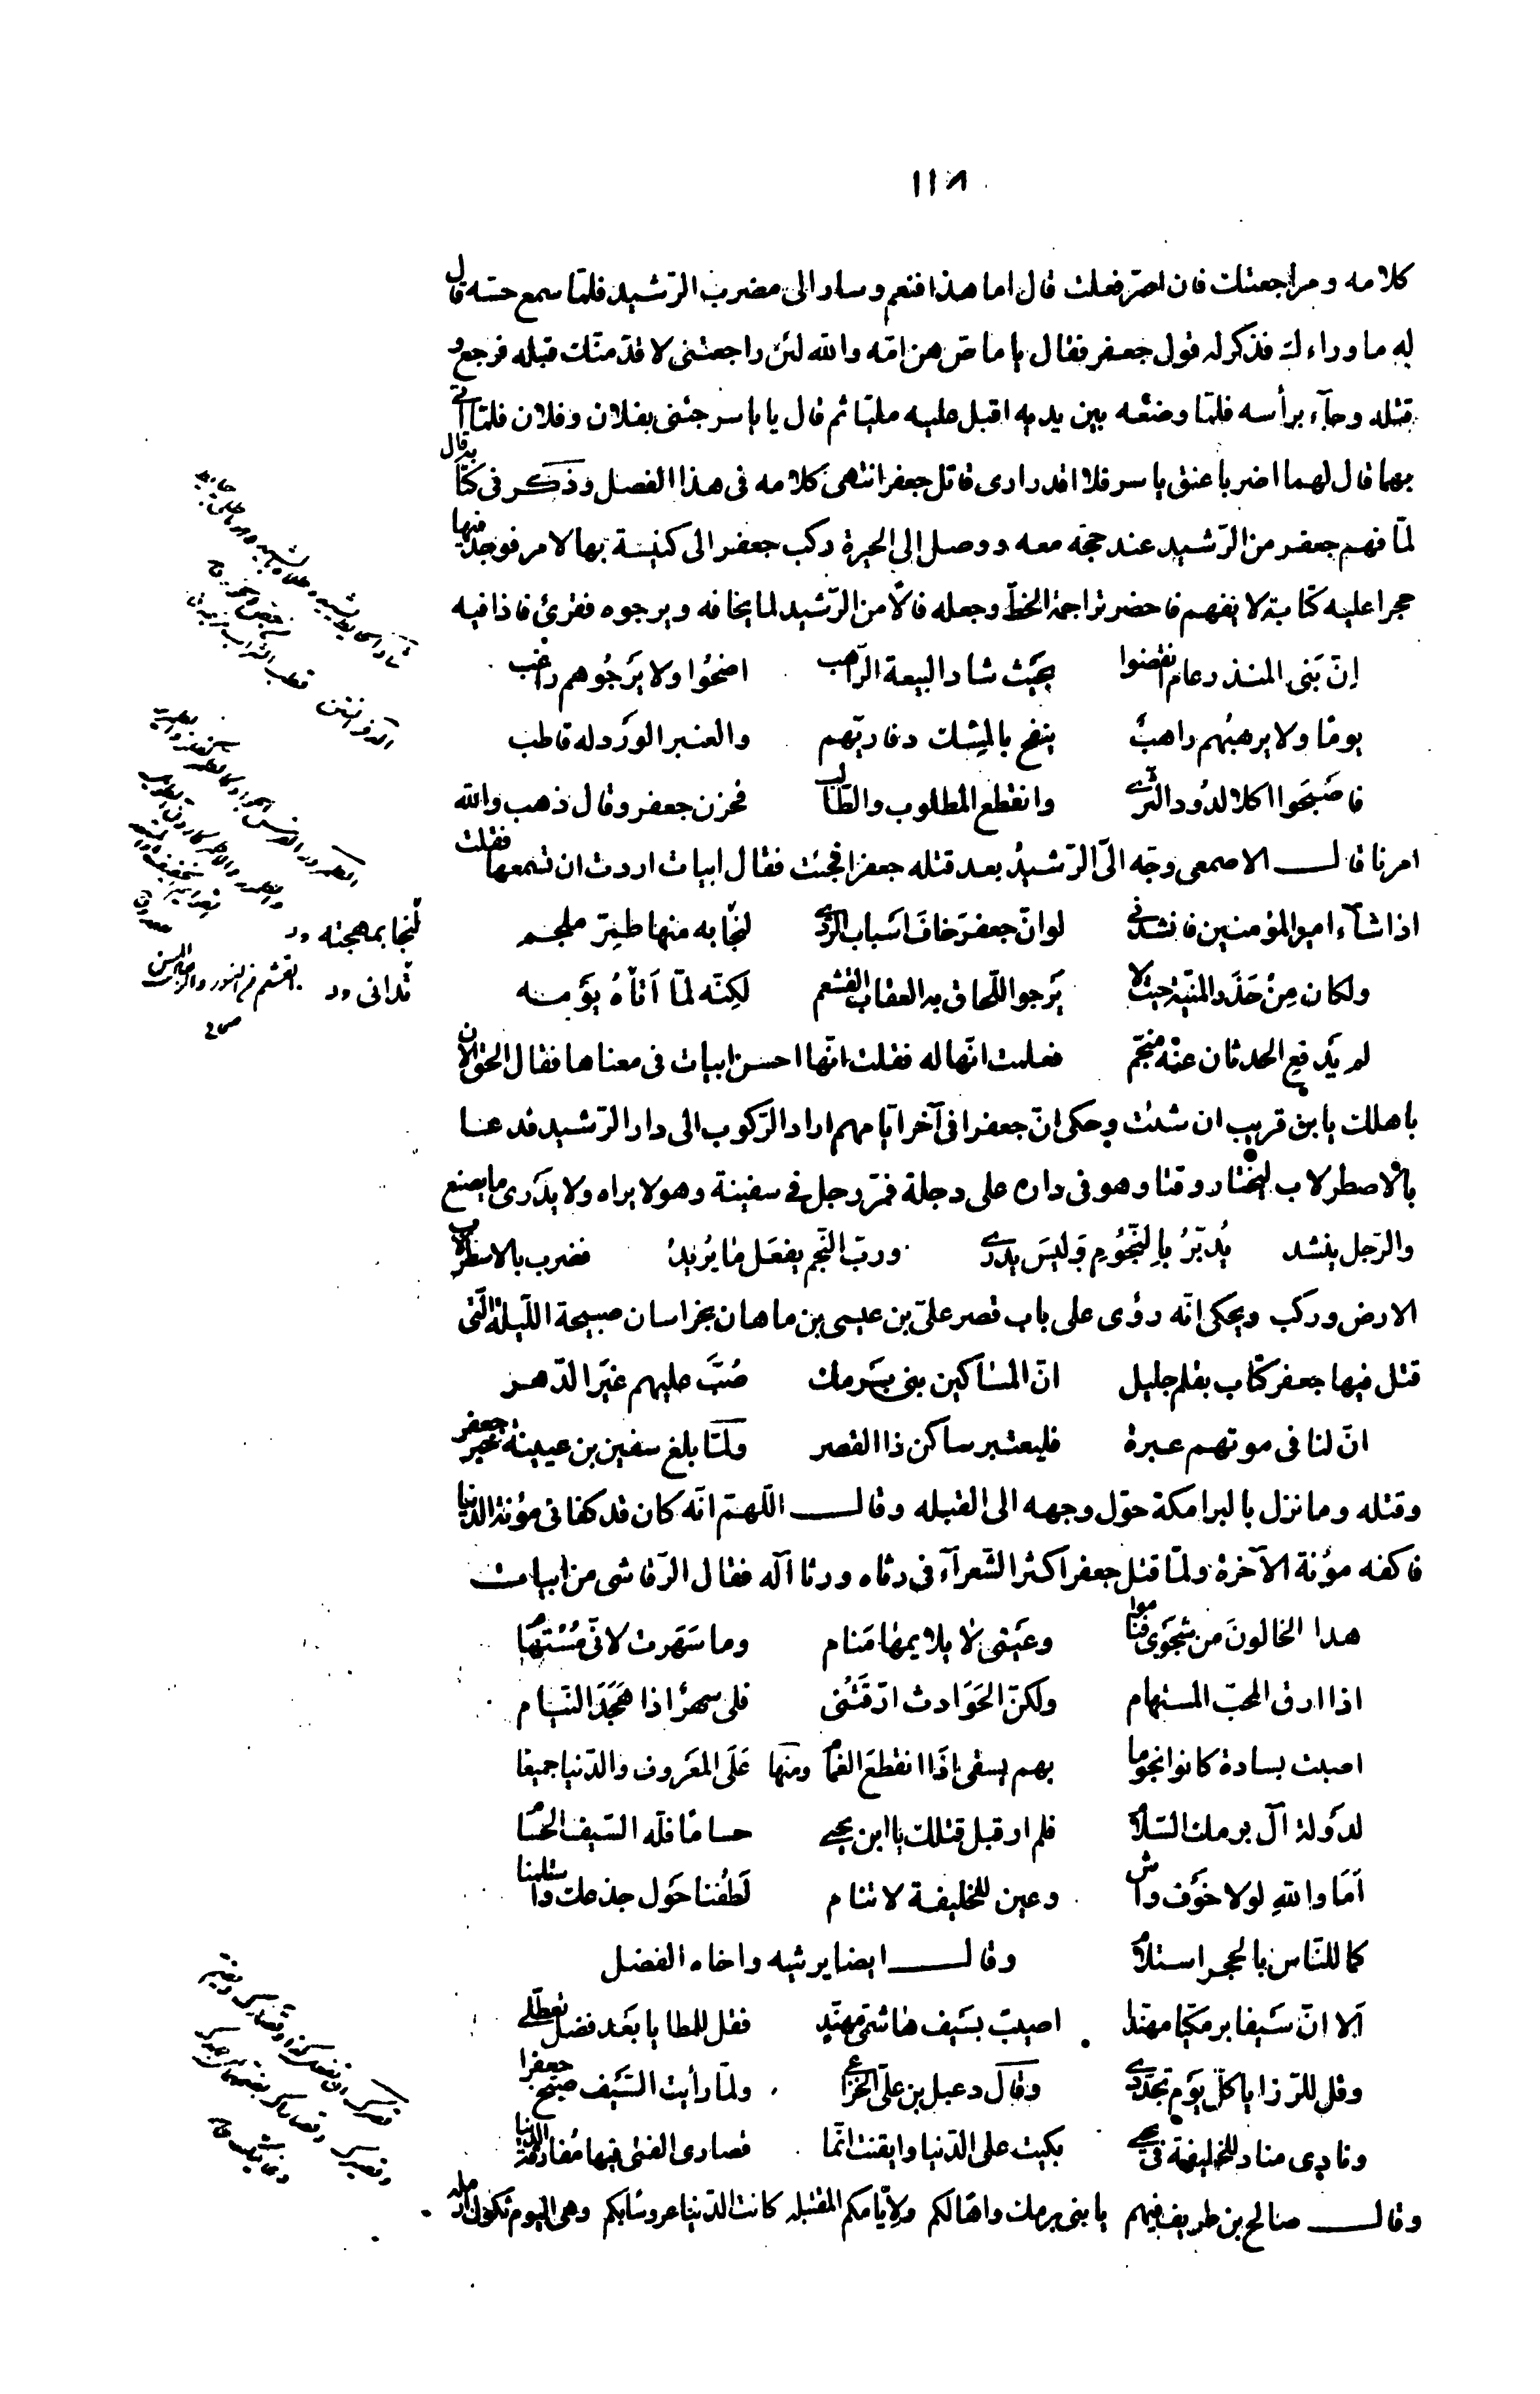 ١١٨
كلامه ومراجعتك فان اصرّ فعلت قال اما هذا فنعم وسار الى مضرب الرّشيد فلمّا سمع حسّه قال
له ما وراءك فذكر له قول جعفر فقال يا ماصّ هن امّه والله لئن راجعتنى لاقدّمنّك قبله فرجع و
قتله وجآء برأسه فلمّا وضعه بين يديه اقبل عليه مليّا ثم قال يا ياسر جئنى بفلان وفلان فلمّا اتى
بهما قال لهما اضربا عنق ياسر فلا اقدر ارى قاتل جعفر انتهى كلامه فى هذا الفصل وذكر فى كتابه قال
لمّا فهم جعفر من الرّشيد عند حجّه معه ووصل الى الحيرة ركب جعفر الى كنيسة بها لامر فوجد فيها
حجرا عليه كتابة لا يفهم فاحضر تراجمة الخطّ وجعله فالًا من الرّشيد لما يخافه ويرجوه فقرئ فاذا فيه
انّ بَنى المنذر عام انقضوا بحيث شاد البيعة الرّاهب اضحُوا ولا يَرجُوهم راغب
يومًا ولا يرهبُهم راهبٌ ينفح بالمِسك ذفاريّهم والعنبر الورَد له قاطب
فاصَبحَوا اكلا لدُود الثّرى وانقطع المطلوب والطّالب فحزن جعفر وقال ذهب والله
امرنا قال الاصمعى وجّه الىّ الرّشيدُ بعد قتله جعفرا فجئت فقال ابيات اردت ان تسمعها فقلت
اذا شآء امير المؤمنين فانشدنى لو انّ جعفرَ خافَ اسَباب الرّدى لنجَا به منها طِمِرّ ملجم
لنَجا بمهجته
ولكان مِنْ حَذَر المنيّة حيث لا يَرجو اللّحاق به العقاب القشعم لكِنّه لمّا اَتاهُ يَؤمه
تدانى
لم يَدفعِ الحدثان عنْهُ منجّم فعلمت انّها له فقلت انّها احسن ابيات فى معناها فقال الحق الان
باهلك يا بن قريب ان شئت وحكى انّ جعفرا فى آخر ايّامهم اراد الرّكوب الى دار الرّشيد فدعا
بالاصطرلاب ليختار وقتا وهو فى داره على دجلة فمرّ رجل فى سفينة وهو لا يراه ولا يدرى ما يصنع
والرّجل ينشد يُدبّرُ بالنّجُومِ وَليسَ يدرى وربّ النّجم يفعَل ما يُريدُ فضرب بالاسطرلاب
الارض وركب ويحكى انّه رؤى على باب قصر علىّ بن عيسى بن ماهان بخراسان صبيحة اللّيلة الّتى
قتل فيها جعفر كتاب بقلم جليل انّ المسَاكين بنى بَرمك صُبَّ عليهم غيَر الدّهر
انّ لنا فى موتهم عبرة فليعتبر ساكن ذا القصر ولمّا بلغ سفين بن عيينة خبر جعفر
وقتله وما نزل بالبرامكة حوّل وجهه الى القبله وقال اللّهمّ انّه كان قد كفانى مؤنة الدّنيا
فاكفه مؤنة الآخرة ولمّا قتل جعفر اكثر الشّعرآء فى رثاه ورثا آله فقال الرّقاشى من ابيات
هدا الخالونَ من شجَوى فنَاموا وعَينى لا يلايمها مَنام وما سَهَرت لانّى مُسْتَهام
اذا ارق المحبّ المستهام ولكنّ الحَوَادث ارّقَتْنى فلى سهرٌ اذا هَجَدَ النّيام
اصبت بسادة كانوا نجوما بهم يسقى اذَا انقطعَ الغمام ومنها عَلَى المعَروف والدّنيا جميعا
لدَولة آل برمك السّلام فلم ار قبل قتلك يا ابن يحيى حسامًا فلّه السّيف الحُسَام
اَمَا واللهِ لولا خوَف واش وعين للخليفة لا تنام لَطُفنا حَول جذعك واستلمنا
كما للنّاس بالحجر استلام وقال ايضا يرثيه واخاه الفضل
اَلا انّ سَيفا برمكيّا مهنّدا اصيبَ بسَيف هاشمّى مهنّدٍ فقل للمطايا بعَد فضل تعطّلى
وقل للرّزايا كلّ يوَم تجدّدى وقال دعبل بن علىّ الخزاعى ولمّا رأيت السّيَف صبّح جعفرا
ونادى مناد للخليفة فى يحيى بكيت على الدّنيا وايقنت انّما قصارى الفتى فيها مُفارقة الدّنيا
وقال صالح بن طريف فيهم يا بنى برمك واهًا لكم ولايّامكم المقتبله كانت الدّنيا عروسًا بكم وهى اليوم ثكول ارمله